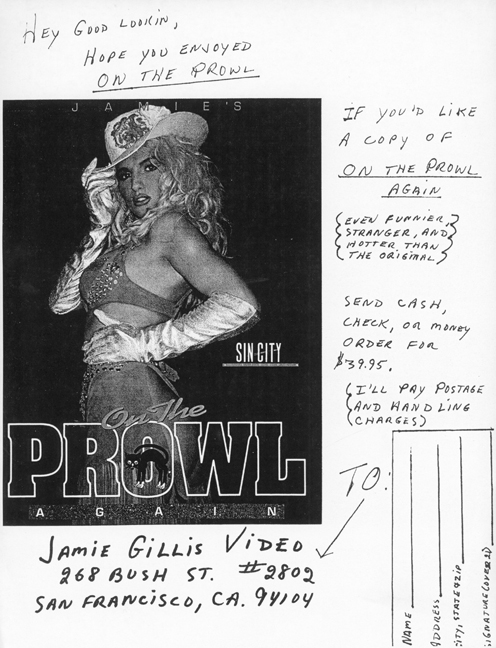 HEY GOOD LOOKIN,
HOPE YOU ENJOYED
ON THE PROWL
JAMIE'S
SIN CITY
On The
PROWL
AGAIN
IF YOU'D LIKE
A COPY OF
ON THE PROWL
AGAIN
(EVEN FUNNIER,
STRANGER, AND
HOTTER THAN
THE ORIGINAL)
SEND CASH,
CHECK, OR MONEY
ORDER FOR
$39.95.
(I'LL PAY POSTAGE
AND HANDLING
CHARGES)
TO:
JAMIE GILLIS VIDEO
268 BUSH ST. #2802
SAN FRANCISCO, CA. 94104
NAME
ADDRESS
CITY, STATE & ZIP
SIGNATURE (OVER 21)